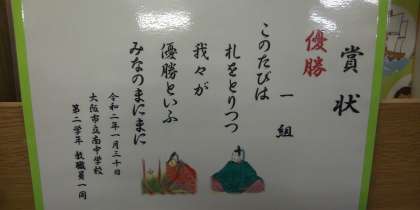 賞状
優勝
一組
このたびは
札をとりつつ
我々が
優勝といふ
みなのまにまに
令和二年一月三十日
大阪市立南中学校
第二学年 教職員一同